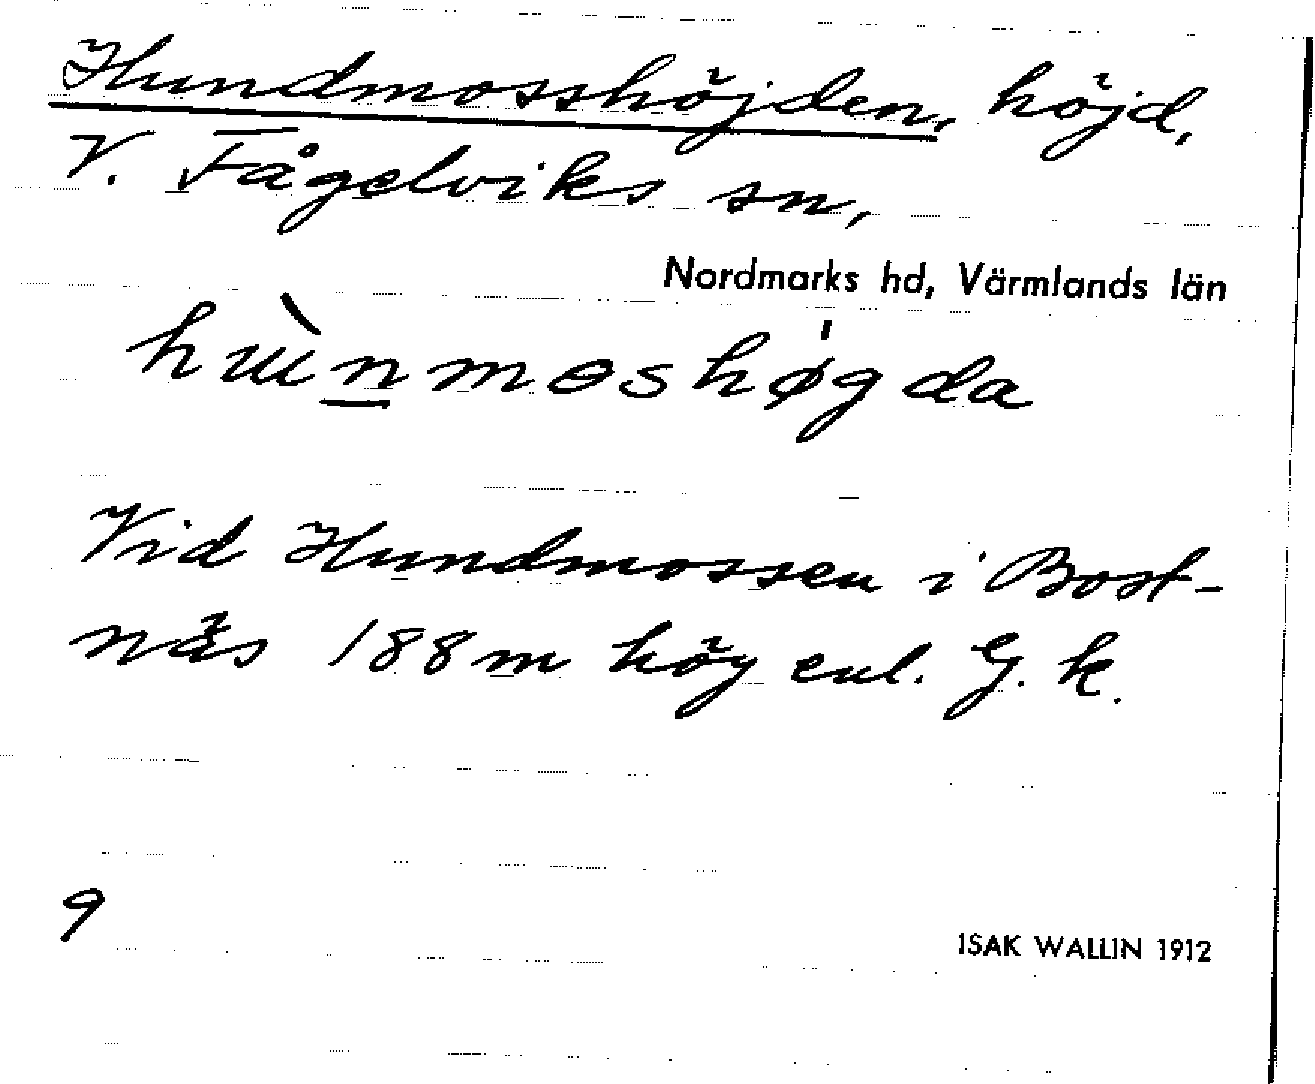 Hundmosshöjden, höjd,
V. Fågelviks sn,
Nordmarks hd, Värmlands län
hɯ̀n̲mɵshǿgda
Vid Hundmossen i Bost-
näs 188 m hög enl. G. k.
9
ISAK WALLIN 1912